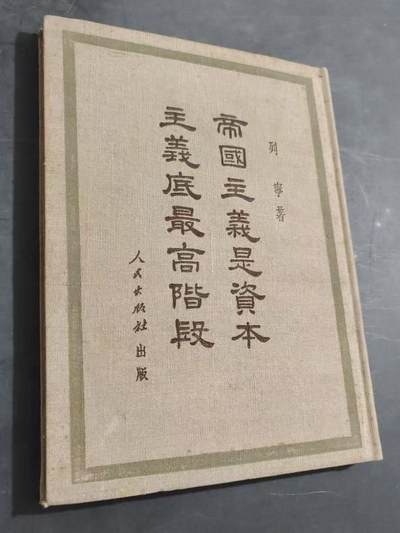 列寧著
帝國主義是資本
主義底最高階段
人民出版社出版